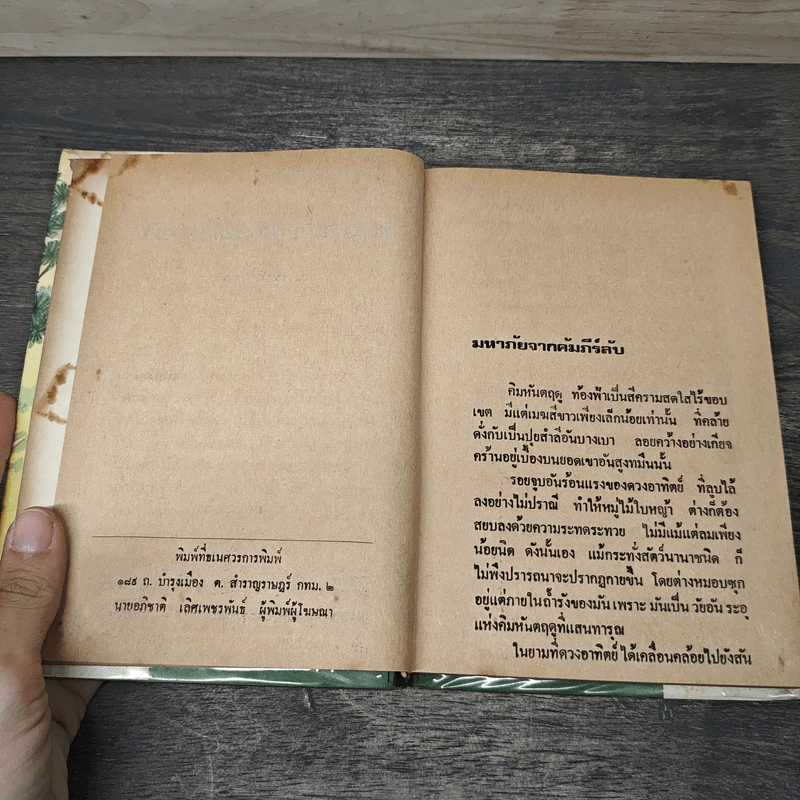 พิมพ์ที่ธเนศวรการพิมพ์
๑๘๙ ถ. บำรุงเมือง ต. สำราญราษฎร์ กทม. ๒
นายอภิชาติ เลิศเพชรพันธ์ ผู้พิมพ์ผู้โฆษณา
มหาภัยจากคัมภีร์ลับ
คิมหันตฤดู ท้องฟ้าเป็นสีครามสดใสไร้ขอบ
เขต มีแต่เมฆสีขาวเพียงเล็กน้อยเท่านั้น ที่คล้าย
ดั่งกับเป็นปุยสำลีอันบางเบา ลอยคว้างอย่างเกียจ
คร้านอยู่เบื้องบนยอดเขาอันสูงทมึนนั้น
รอยจูบอันร้อนแรงของดวงอาทิตย์ ที่ลูบไล้
ลงอย่างไม่ปราณี ทำให้หมู่ไม้ใบหญ้า ต่างก็ต้อง
สยบลงด้วยความระทดระทวย ไม่มีแม้แต่ลมเพียง
น้อยนิด ดังนั้นเอง แม้กระทั่งสัตว์นานาชนิด ก็
ไม่พึงปรารถนาจะปรากฏกายขึ้น โดยต่างหมอบซุก
อยู่แต่ภายในถ้ำรังของมัน เพราะ มันเป็น วัยอัน ระอุ
แห่งคิมหันตฤดูที่แสนทารุณ
ในยามที่ดวงอาทิตย์ ได้เคลื่อนคล้อยไปยังสัน